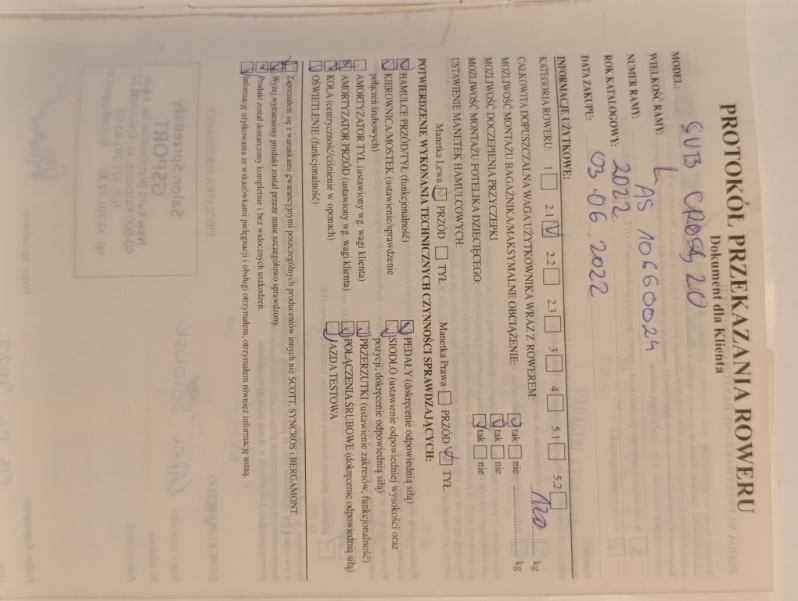 PROTOKÓŁ PRZEKAZANIA ROWERU
Dokument dla Klienta
MODEL: SUB CROSS 20
WIELKOŚĆ RAMY: L
NUMER RAMY: AS 10660024
ROK KATALOGOWY: 2022
DATA ZAKUPU: 03.06.2022
INFORMACJE UŻYTKOWE:
KATEGORIA ROWERU: 1 2.1 2.2 2.3 3 4 5.1 5.2
CAŁKOWITA DOPUSZCZALNA WAGA UŻYTKOWNIKA WRAZ Z ROWEREM: 120 kg
MOŻLIWOŚĆ MONTAŻU BAGAŻNIKA/MAKSYMALNE OBCIĄŻENIE: tak nie kg
MOŻLIWOŚĆ DOCZEPIENIA PRZYCZEPKI tak nie
MOŻLIWOŚĆ MONTAŻU FOTELIKA DZIECIĘCEGO tak nie
USTAWIENIE MANETEK HAMULCOWYCH:
Manetka Lewa PRZÓD TYŁ Manetka Prawa PRZÓD TYŁ
POTWIERDZENIE WYKONANIA TECHNICZNYCH CZYNNOŚCI SPRAWDZAJĄCYCH:
HAMULCE PRZÓD/TYŁ (funkcjonalność) PEDAŁY (dokręcenie odpowiednią siłą)
KIEROWNICA/MOSTEK (ustawienie/sprawdzenie SIODŁO (ustawienie odpowiedniej wysokości oraz
połączeń śrubowych) pozycji, dokręcenie odpowiednią siłą)
AMORTYZATOR TYŁ (ustawiony wg. wagi klienta) PRZERZUTKI (ustawienie zakresów, funkcjonalność)
AMORTYZATOR PRZÓD (ustawiony wg. wagi klienta) POŁĄCZENIA ŚRUBOWE (dokręcenie odpowiednią siłą)
KOŁA (centryczność/ciśnienie w oponach) JAZDA TESTOWA
OŚWIETLENIE (funkcjonalność)
Zapoznałem się z warunkami gwarancyjnymi poszczególnych producentów innych niż SCOTT, SYNCROS i BERGAMONT.
Wyżej wymieniony produkt został przeze mnie szczegółowo sprawdzony.
Produkt został dostarczony kompletnie i bez widocznych uszkodzeń.
Informację użytkowania ze wskazówkami pielęgnacji i obsługi otrzymałem, otrzymałem również informację ustną.